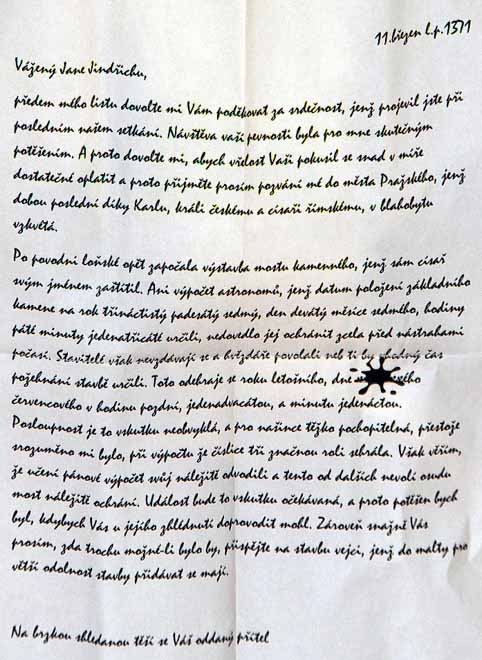 11.březen l.p.1371
Vážený Jane Jindřichu,
předem mého listu dovolte mi Vám poděkovat za srdečnost, jenž projevil jste při
posledním našem setkání. Návštěva vaší pevnosti byla pro mne skutečným
potěšením. A proto dovolte mi, abych vřelost Vaši pokusil se snad v míře
dostatečné oplatit a proto přijměte prosím pozvání mé do města Pražského, jenž
dobou poslední díky Karlu, králi českému a císaři římskému, v blahobytu
vzkvétá.
Po povodni loňské opět započala výstavba mostu kamenného, jenž sám císař
svým jménem zaštítil. Ani výpočet astronomů, jenž datum položení základního
kamene na rok třináctistý padesátý sedmý, den devátý měsíce sedmého, hodiny
páté minuty jenatřicáté určili, nedovedlo jej ochránit zcela před nástrahami
počasí. Stavitelé však nevzdávají se a hvězdáře povolali neb ti by vhodný čas
požehnání stavbě určili. Toto odehraje se roku letošního, dne
červencového v hodinu pozdní, jedenadvacátou, a minutu jedenáctou.
Posloupnost je to vskutku neobvyklá, a pro našince těžko pochopitelná, přestože
srozuměno mi bylo, při výpočtu že číslice tři značnou roli sehrála. Však věřím,
že učení pánové výpočet svůj náležitě odvodili a tento od dalších nevolí osudu
most náležitě ochrání. Událost bude to vskutku očekávaná, a proto potěšen bych
byl, kdybych Vás u jejího zhlédnutí doprovodit mohl. Zároveň snažně Vás
prosím, zda trochu možné-li bylo by, přispějte na stavbu vejci, jenž do malty pro
větší odolnost stavby přidávat se mají.
Na brzkou shledanou těší se Váš oddaný přítel